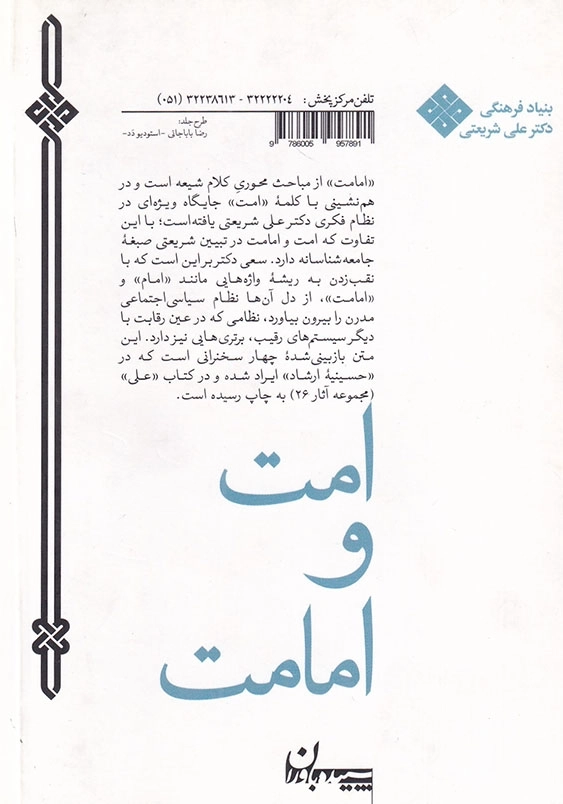 بنیاد فرهنگی
دکتر علی شریعتی
تلفن مرکز پخش: ۳۲۲۲۲۲۰۴ - ۳۲۲۳۸۶۱۳ (۰۵۱)
طرح جلد:
رضا باباجانی -استودیو دَد-
9 786005 957891
«امامت» از مباحث محوریِ کلام شیعه است و در
هم‌نشینی با کلمهٔ «امت» جایگاه ویژه‌ای در
نظام فکری دکتر علی شریعتی یافته‌است؛ با این
تفاوت که امت و امامت در تبیین شریعتی صبغهٔ
جامعه‌شناسانه دارد. سعی دکتر بر این است که با
نقب‌زدن به ریشهٔ واژه‌هایی مانند «امام» و
«امامت»، از دل آن‌ها نظام سیاسی‌اجتماعی
مدرن را بیرون بیاورد، نظامی که در عین رقابت با
دیگر سیستم‌های رقیب، برتری‌هایی نیز دارد. این
متن بازبینی‌شدهٔ چهار سخنرانی است که در
«حسینیهٔ ارشاد» ایراد شده و در کتاب «علی»
(مجموعه آثار ۲۶) به چاپ رسیده است.
امت
و
امامت
سپیده‌باوران